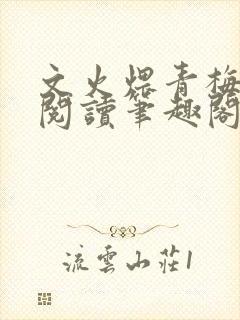 文火煨青梅
閱讀筆趣閣
流雲山莊1